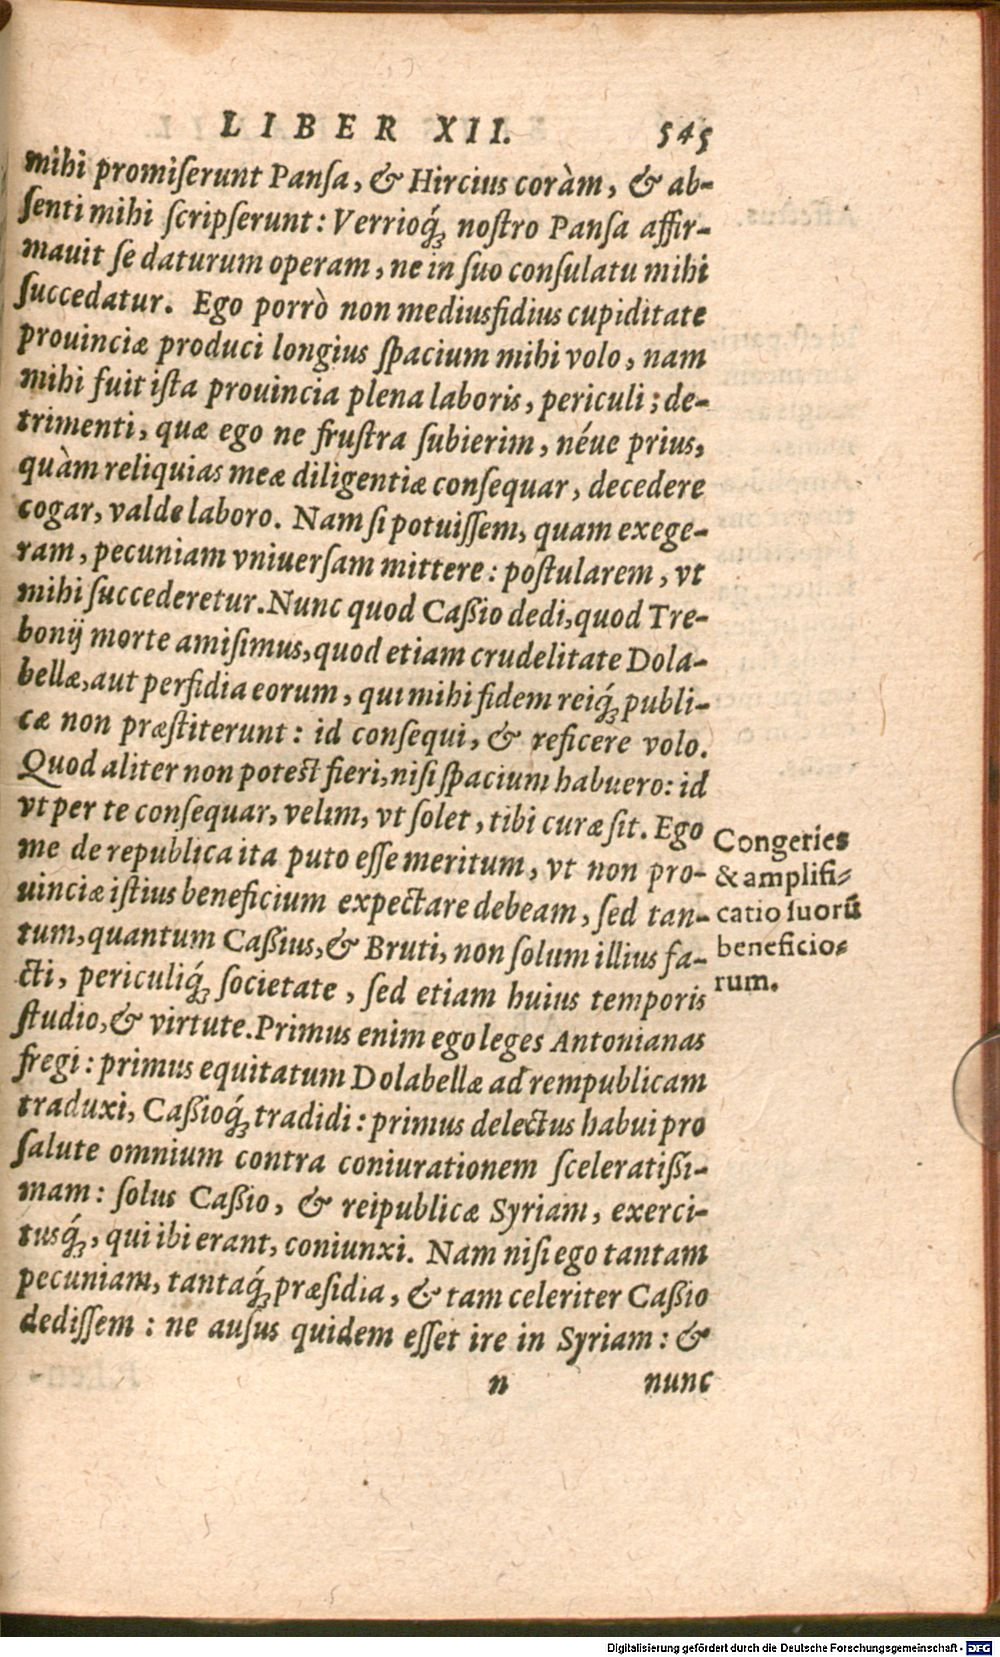 LIBER XII. 545
mihi promiſerunt Panſa, & Hircius coràm, & ab-
ſenti mihi ſcripſerunt: Verrioq́; noſtro Panſa affir-
mauit ſe daturum operam, ne in ſuo conſulatu mihi
ſuccedatur. Ego porrò non mediusfidius cupiditate
prouinciæ produci longius ſpacium mihi volo, nam
mihi fuit iſta prouincia plena laboris, periculi; de-
trimenti, quæ ego ne fruſtra ſubierim, néue prius,
quàm reliquias meæ diligentiæ conſequar, decedere
cogar, valde laboro. Nam ſi potuiſſem, quam exege-
ram, pecuniam vniuerſam mittere: poſtularem, vt
mihi ſuccederetur. Nunc quod Caßio dedi, quod Tre-
bonij morte amiſimus, quod etiam crudelitate Dola-
bellæ, aut perfidia eorum, qui mihi fidem reiq́; publi-
cæ non præſtiterunt: id conſequi, & reficere volo.
Quod aliter non poteſt fieri, niſi ſpacium habuero: id
vt per te conſequar, velim, vt ſolet, tibi curæ ſit. Ego
me de republica ita puto eſſe meritum, vt non pro-
uinciæ iſtius beneficium expectare debeam, ſed tan-
tum, quantum Caßius, & Bruti, non ſolum illius fa-
cti, periculiq́; ſocietate, ſed etiam huius temporis
ſtudio, & virtute. Primus enim ego leges Antonianas
fregi: primus equitatum Dolabellæ ad rempublicam
traduxi, Caßioq́; tradidi: primus delectus habui pro
ſalute omnium contra coniurationem ſceleratißi-
mam: ſolus Caßio, & reipublicæ Syriam, exerci-
tusq́;, qui ibi erant, coniunxi. Nam niſi ego tantam
pecuniam, tantaq́; præſidia, & tam celeriter Caßio
dediſſem: ne auſus quidem eſſet ire in Syriam: &
n nunc
Congeries
& amplifi-
catio ſuorū
beneficio-
rum.
Digitalisierung gefördert durch die Deutsche Forschungsgemeinschaft - DFG